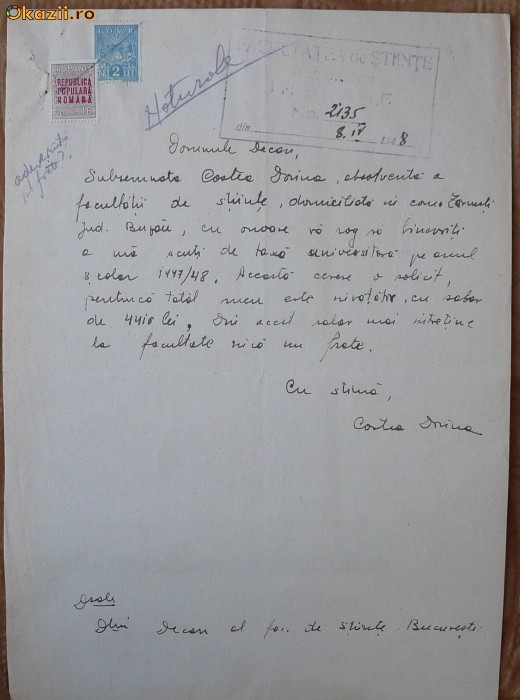 Okazii.ro
I.O.V.R.
2 LEI
ROMANIA
REPUBLICA
POPULARA
ROMÂNĂ
Naturale
FACULTATEA de ȘTIINȚE
No. 2135
din 8. IV 1948
Domnule Decan,
Subsemnata Costea Dorina, absolventă a
facultății de științe, domiciliată în com.
Jud. Buzău, cu onoare vă rog să binevoiți
a mă scuti de taxă universitară pe anul
școlar 1947/48. Această cerere o solicit,
pentrucă tatăl meu este învățător, cu salar
de 4410 lei, Din acest salar mai întreține
la facultate încă un frate.
Cu stimă,
Costea Dorina
Dsale
Dlui Decan al fac. de Științe București